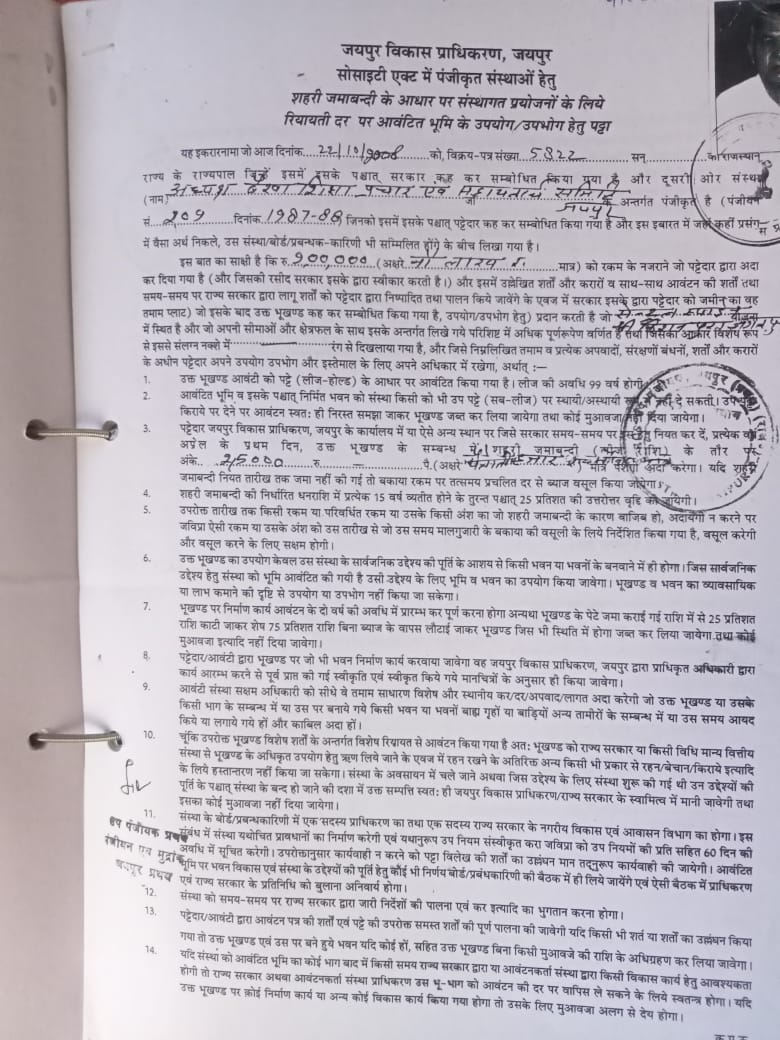 जयपुर विकास प्राधिकरण, जयपुर
सोसाइटी एक्ट में पंजीकृत संस्थाओं हेतु
शहरी जमाबन्दी के आधार पर संस्थागत प्रयोजनों के लिये
रियायती दर पर आवंटित भूमि के उपयोग/उपभोग हेतु पट्टा
यह इकरारनामा जो आज दिनांक. 22/10/2008 को, विक्रय-पत्र संख्या 5822 सन् का राजस्थान
राज्य के राज्यपाल जिन्हें इसमें इसके पश्चात् सरकार कह कर सम्बोधित किया गया है और दूसरी ओर संस्था
(नाम) अध्यक्ष शिक्षा प्रचार एवं समिति जयपुर जो के अन्तर्गत पंजीकृत है (पंजीयन
सं. 209 दिनांक 1987-88 जिनको इसमें इसके पश्चात् पट्टेदार कह कर सम्बोधित किया गया है और इस इबारत में जहां कहीं प्रसंग
में वैसा अर्थ निकले, उस संस्था/बोर्ड/प्रबन्धक-कारिणी भी सम्मिलित होंगे के बीच लिखा गया है।
इस बात का साक्षी है कि रु. 900,000 (अक्षरे नौ लाख रु. मात्र) को रकम के नजराने जो पट्टेदार द्वारा अदा
कर दिया गया है (और जिसकी रसीद सरकार इसके द्वारा स्वीकार करती है।) और इसमें उल्लेखित शर्तों और करारों व साथ-साथ आवंटन की शर्तों तथा
समय-समय पर राज्य सरकार द्वारा लागू शर्तों को पट्टेदार द्वारा निष्पादित तथा पालन किये जावेंगे के एवज में सरकार इसके द्वारा पट्टेदार को जमीन का वह
तमाम प्लाट) जो इसके बाद उक्त भूखण्ड कह कर सम्बोधित किया गया है, उपयोग/उपभोग हेतु) प्रदान करती है जो योजना
में स्थित है और जो अपनी सीमाओं और क्षेत्रफल के साथ इसके अन्तर्गत लिखे गये परिशिष्ट में अधिक पूर्णरूपेण वर्णित है तथा जिसका आकार विशेष रूप
से इससे संलग्न नक्शे में रंग से दिखलाया गया है, और जिसे निम्नलिखित तमाम व प्रत्येक अपवादों, संरक्षणों बंधनों, शर्तों और करारों
के अधीन पट्टेदार अपने उपयोग उपभोग और इस्तेमाल के लिए अपने अधिकार में रखेगा, अर्थात् :—
1. उक्त भूखण्ड आवंटी को पट्टे (लीज-होल्ड) के आधार पर आवंटित किया गया है। लीज की अवधि 99 वर्ष होगी
2. आवंटित भूमि व इसके पश्चात् निर्मित भवन को संस्था किसी को भी उप पट्टे (सब-लीज) पर स्थायी/अस्थायी नहीं दे सकती।
किराये पर देने पर आवंटन स्वत: ही निरस्त समझा जाकर भूखण्ड जब्त कर लिया जायेगा तथा कोई मुआवजा नहीं दिया जायेगा।
3. पट्टेदार जयपुर विकास प्राधिकरण, जयपुर के कार्यालय में या ऐसे अन्य स्थान पर जिसे सरकार समय-समय पर इस हेतु नियत कर दें, प्रत्येक वर्ष
अप्रेल के प्रथम दिन, उक्त भूखण्ड के सम्बन्ध में शहरी जमाबन्दी (लीज राशि) के तौर पर
अंके. रु. पै. (अक्षरे मात्र पेशगी अदा करेगा। यदि शहरी
जमाबन्दी नियत तारीख तक जमा नहीं की गई तो बकाया रकम पर तत्समय प्रचलित दर से ब्याज वसूल किया जायेगा।
4. शहरी जमाबन्दी की निर्धारित धनराशि में प्रत्येक 15 वर्ष व्यतीत होने के तुरन्त पश्चात् 25 प्रतिशत की उत्तरोत्तर वृद्धि की जायेगी।
5. उपरोक्त तारीख तक किसी रकम या परिवर्धित रकम या उसके किसी अंश का जो शहरी जमाबन्दी के कारण वाजिब हो, अदायगी न करने पर
जविप्रा ऐसी रकम या उसके अंश को उस तारीख से जो उस समय मालगुजारी के बकाया की वसूली के लिये निर्देशित किया गया है, वसूल करेगी
और वसूल करने के लिए सक्षम होगी।
6. उक्त भूखण्ड का उपयोग केवल उस संस्था के सार्वजनिक उद्देश्य की पूर्ति के आशय से किसी भवन या भवनों के बनवाने में ही होगा। जिस सार्वजनिक
उद्देश्य हेतु संस्था को भूमि आवंटित की गयी है उसी उद्देश्य के लिए भूमि व भवन का उपयोग किया जावेगा। भूखण्ड व भवन का व्यावसायिक
या लाभ कमाने की दृष्टि से उपयोग या उपभोग नहीं किया जा सकेगा।
7. भूखण्ड पर निर्माण कार्य आवंटन के दो वर्ष की अवधि में प्रारम्भ कर पूर्ण करना होगा अन्यथा भूखण्ड के पेटे जमा कराई गई राशि में से 25 प्रतिशत
राशि काटी जाकर शेष 75 प्रतिशत राशि बिना ब्याज के वापस लौटाई जाकर भूखण्ड जिस भी स्थिति में होगा जब्त कर लिया जायेगा तथा कोई
मुआवजा इत्यादि नहीं दिया जावेगा।
8. पट्टेदार/आवंटी द्वारा भूखण्ड पर जो भी भवन निर्माण कार्य करवाया जावेगा वह जयपुर विकास प्राधिकरण, जयपुर द्वारा प्राधिकृत अधिकारी द्वारा
कार्य आरम्भ करने से पूर्व प्राप्त की गई स्वीकृति एवं स्वीकृत किये गये मानचित्रों के अनुसार ही किया जावेगा।
9. आवंटी संस्था सक्षम अधिकारी को सीधे वे तमाम साधारण विशेष और स्थानीय कर/दर/अपवाद/लागत अदा करेगी जो उक्त भूखण्ड या उसके
किसी भाग के सम्बन्ध में या उस पर बनाये गये किसी भवन या भवनों बाह्य गृहों या बाड़ियों अन्य तामीरों के सम्बन्ध में या उस समय आयद
किये या लगाये गये हों और काबिल अदा हों।
10. चूंकि उपरोक्त भूखण्ड विशेष शर्तों के अन्तर्गत विशेष रियायत से आवंटन किया गया है अत: भूखण्ड को राज्य सरकार या किसी विधि मान्य वित्तीय
संस्था से भूखण्ड के अधिकृत उपयोग हेतु ऋण लिये जाने के एवज में रहन रखने के अतिरिक्त अन्य किसी भी प्रकार से रहन/बेचान/किराये इत्यादि
के लिये हस्तान्तरण नहीं किया जा सकेगा। संस्था के अवसायन में चले जाने अथवा जिस उद्देश्य के लिए संस्था शुरू की गई थी उन उद्देश्यों की
पूर्ति के पश्चात् संस्था के बन्द हो जाने की दशा में उक्त सम्पत्ति स्वत: ही जयपुर विकास प्राधिकरण/राज्य सरकार के स्वामित्व में मानी जावेगी तथा
इसका कोई मुआवजा नहीं दिया जायेगा।
11. संस्था के बोर्ड/प्रबन्धकारिणी में एक सदस्य प्राधिकरण का तथा एक सदस्य राज्य सरकार के नगरीय विकास एवं आवासन विभाग का होगा। इस
संबंध में संस्था यथोचित प्रावधानों का निर्माण करेगी एवं यथानुरूप उप नियम संस्वीकृत करा जविप्रा को उप नियमों की प्रति सहित 60 दिन की
अवधि में सूचित करेगी। उपरोक्तानुसार कार्यवाही न करने को पट्टा विलेख की शर्तों का उल्लंघन मान तद्नुरूप कार्यवाही की जायेगी। आवंटित
भूमि पर भवन विकास एवं संस्था के उद्देश्यों की पूर्ति हेतु कोई भी निर्णय बोर्ड/प्रबंधकारिणी की बैठक में ही लिये जायेंगे एवं ऐसी बैठक में प्राधिकरण
एवं राज्य सरकार के प्रतिनिधि को बुलाना अनिवार्य होगा।
उप पंजीयक प्रथम
पंजीयन एवं मुद्रांक
जयपुर प्रथम
12. संस्था को समय-समय पर राज्य सरकार द्वारा जारी निर्देशों की पालना एवं कर इत्यादि का भुगतान करना होगा।
13. पट्टेदार/आवंटी द्वारा आवंटन पत्र की शर्तों एवं पट्टे की उपरोक्त समस्त शर्तों की पूर्ण पालना की जावेगी यदि किसी भी शर्त या शर्तों का उल्लंघन किया
गया तो उक्त भूखण्ड एवं उस पर बने हुये भवन यदि कोई हों, सहित उक्त भूखण्ड बिना किसी मुआवजे की राशि के अधिग्रहण कर लिया जावेगा।
14. यदि संस्था को आवंटित भूमि का कोई भाग बाद में किसी समय राज्य सरकार द्वारा या आवंटनकर्ता संस्था द्वारा किसी विकास कार्य हेतु आवश्यकता
होगी तो राज्य सरकार अथवा आवंटनकर्ता संस्था प्राधिकरण उस भू-भाग को आवंटन की दर पर वापिस ले सकने के लिये स्वतन्त्र होगा। यदि
उक्त भूखण्ड पर कोई निर्माण कार्य या अन्य कोई विकास कार्य किया गया होगा तो उसके लिए मुआवजा अलग से देय होगा।